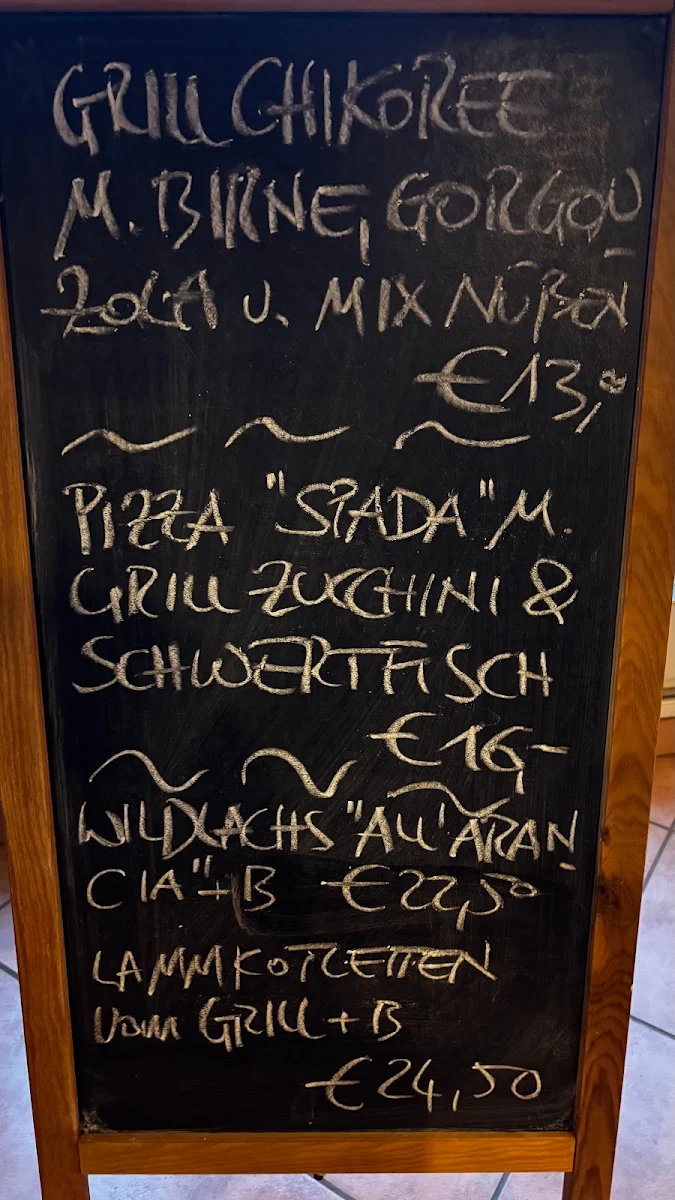 GRILL CHIKOREE
M. BIRNE, GORGON
ZOLA U. MIX NÜßEN
€13,-
~ ~ ~
PIZZA "SPADA" M.
GRILL ZUCCHINI &
SCHWERTFISCH
€16,-
~ ~ ~
WILDLACHS "ALL'ARAN
CIA" + B €22,50
LAMMKOTLETTEN
VOM GRILL + B
€24,50